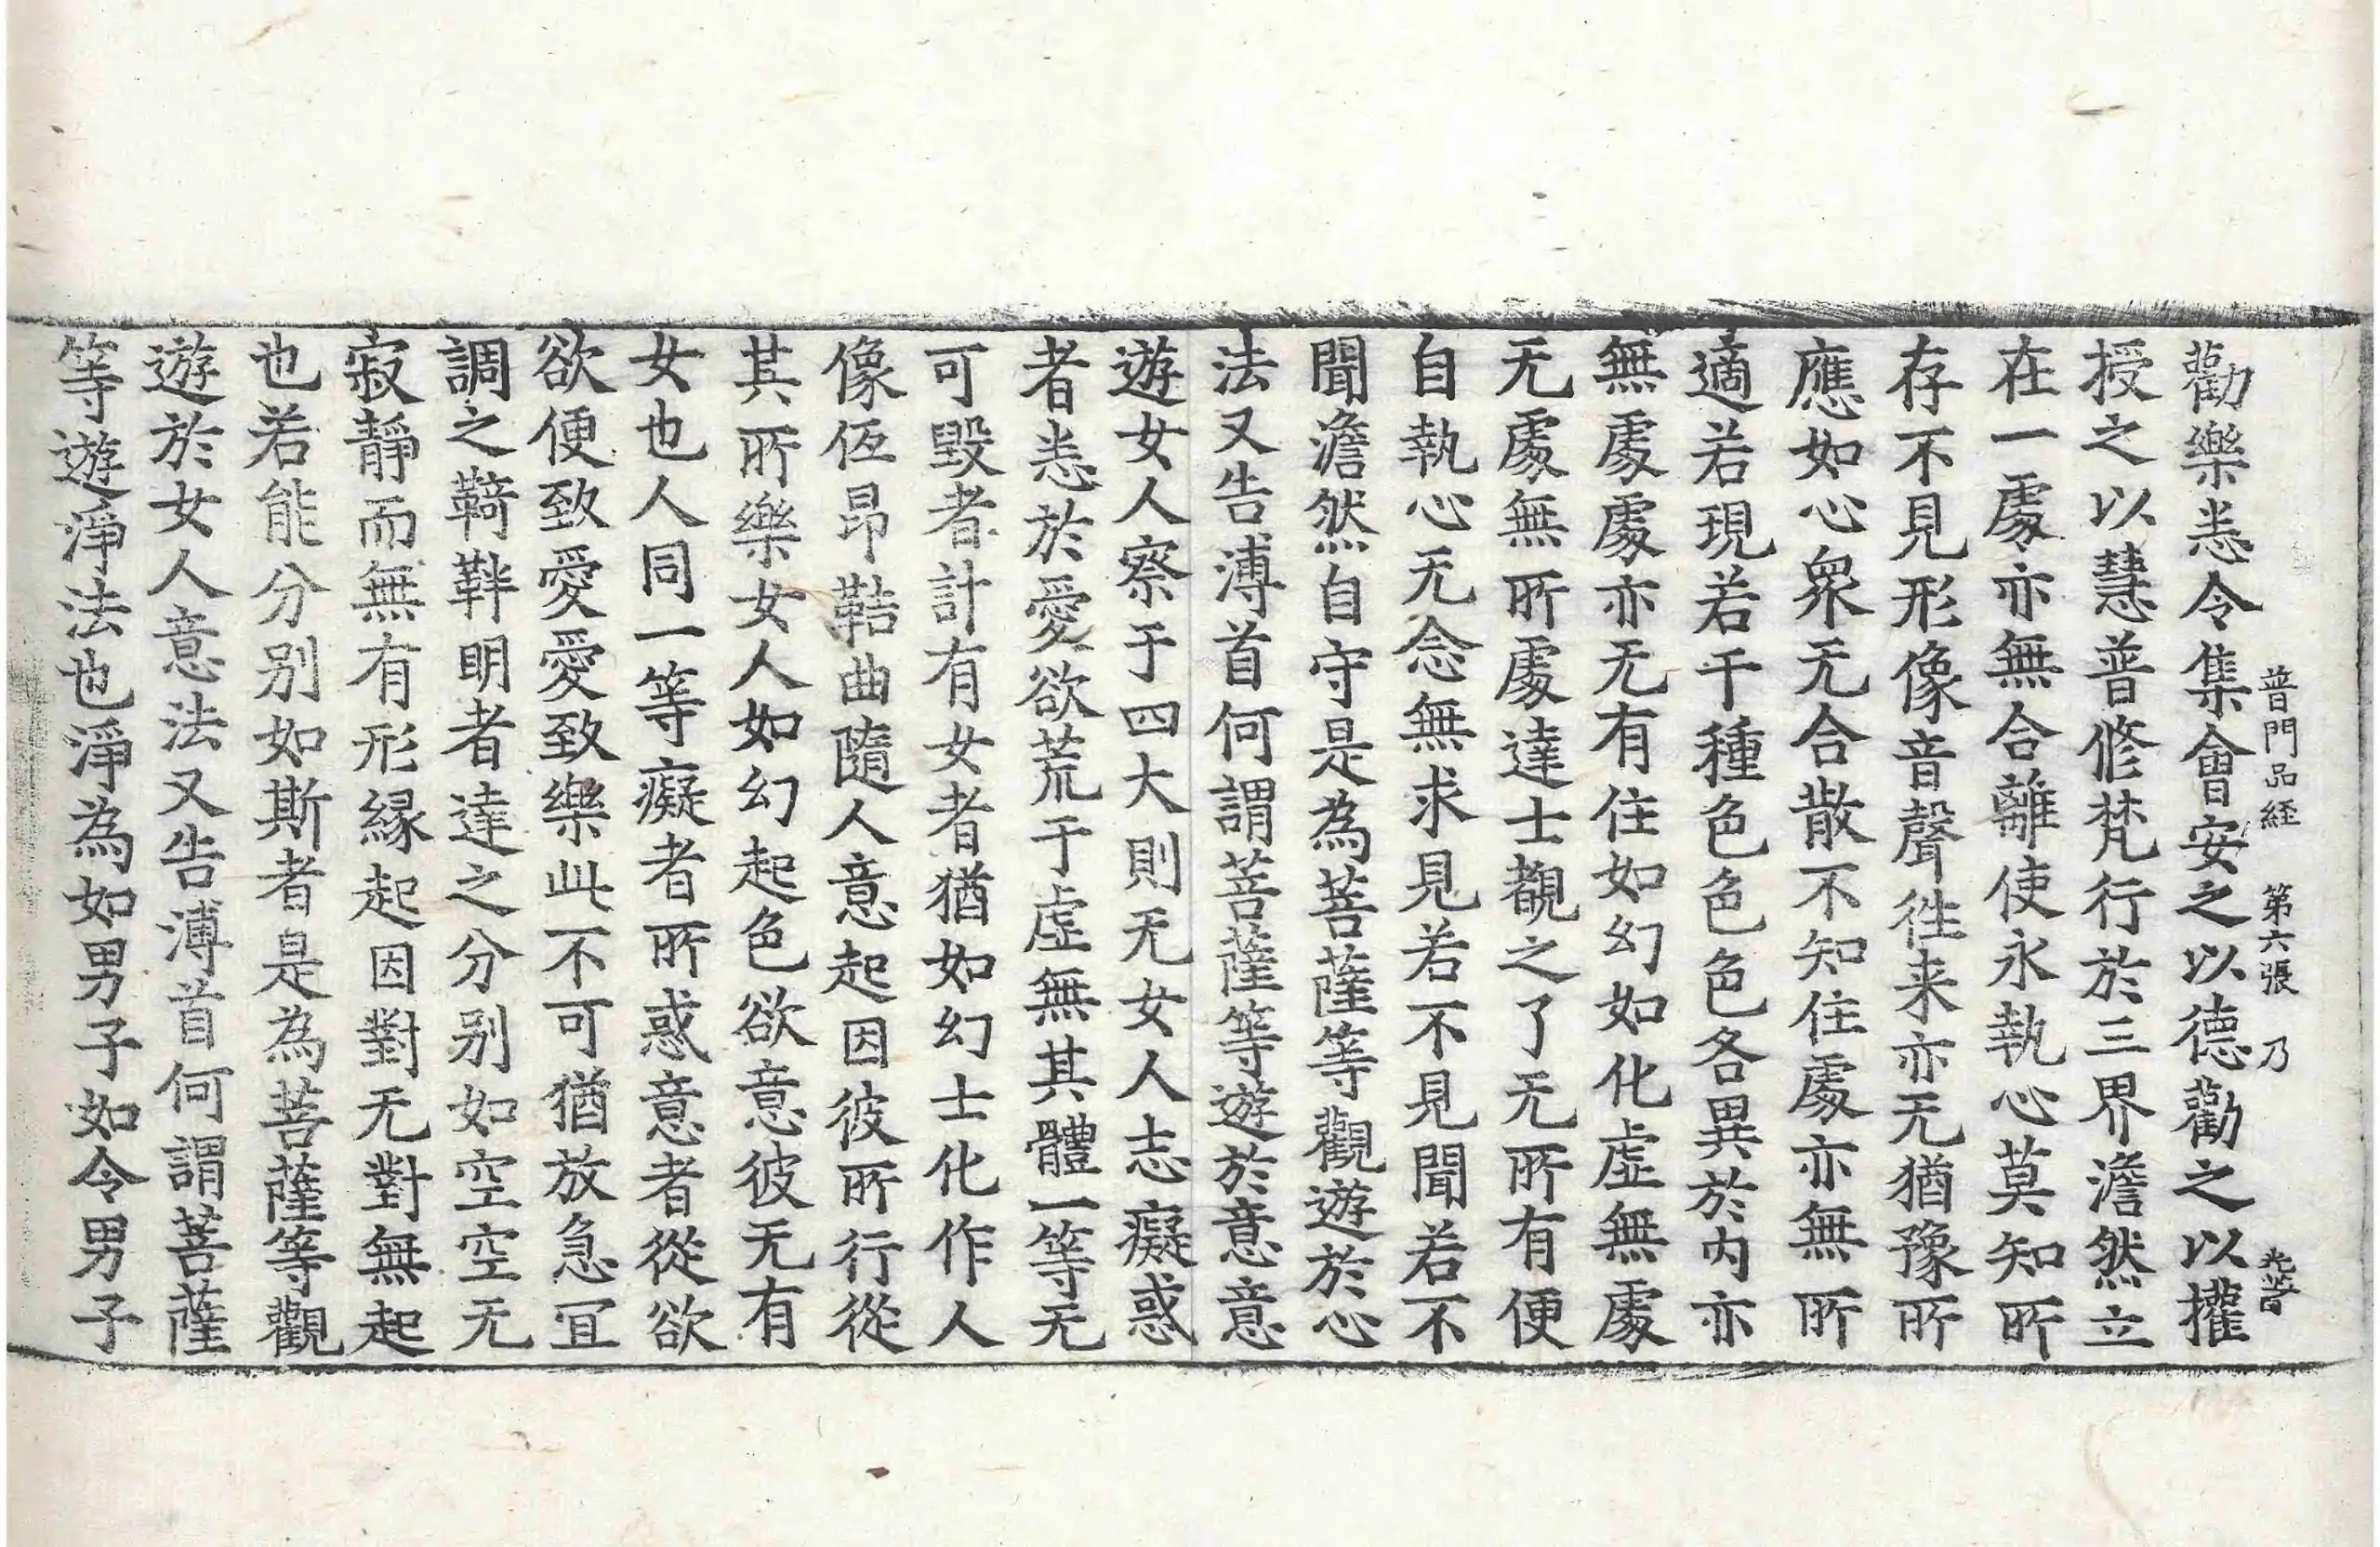 普門品経 第六張 乃
勸樂恚令集會安之以德勸之以攉
授之以慧普修梵行於三界澹然立
在一處亦無合離使永執心莫知所
存不見形像音聲徃来亦无猶豫所
應如心衆无合散不知住處亦無所
適若現若干種色色色各異於内亦
無處處亦无有住如幻如化虛無處
无處無所處達士覩之了无所有便
自執心无念無求見若不見聞若不
聞澹然自守是為菩薩等觀遊於心
法又告溥首何謂菩薩等遊於意意
遊女人察于四大則无女人志癡惑
者恚於愛欲荒于虛無其體一等无
可毀者計有女者猶如幻士化作人
像仾昂鞊曲隨人意起因彼所行從
其所樂女人如幻起色欲意彼无有
女也人同一等癡者所惑意者從欲
欲便致愛愛致樂此不可猶放急冝
調之鞫靽明者達之分别如空空无
寂靜而無有形縁起因對无對無起
也若能分别如斯者是為菩薩等觀
遊於女人意法又告溥首何謂菩薩
等遊淨法也淨為如男子如令男子